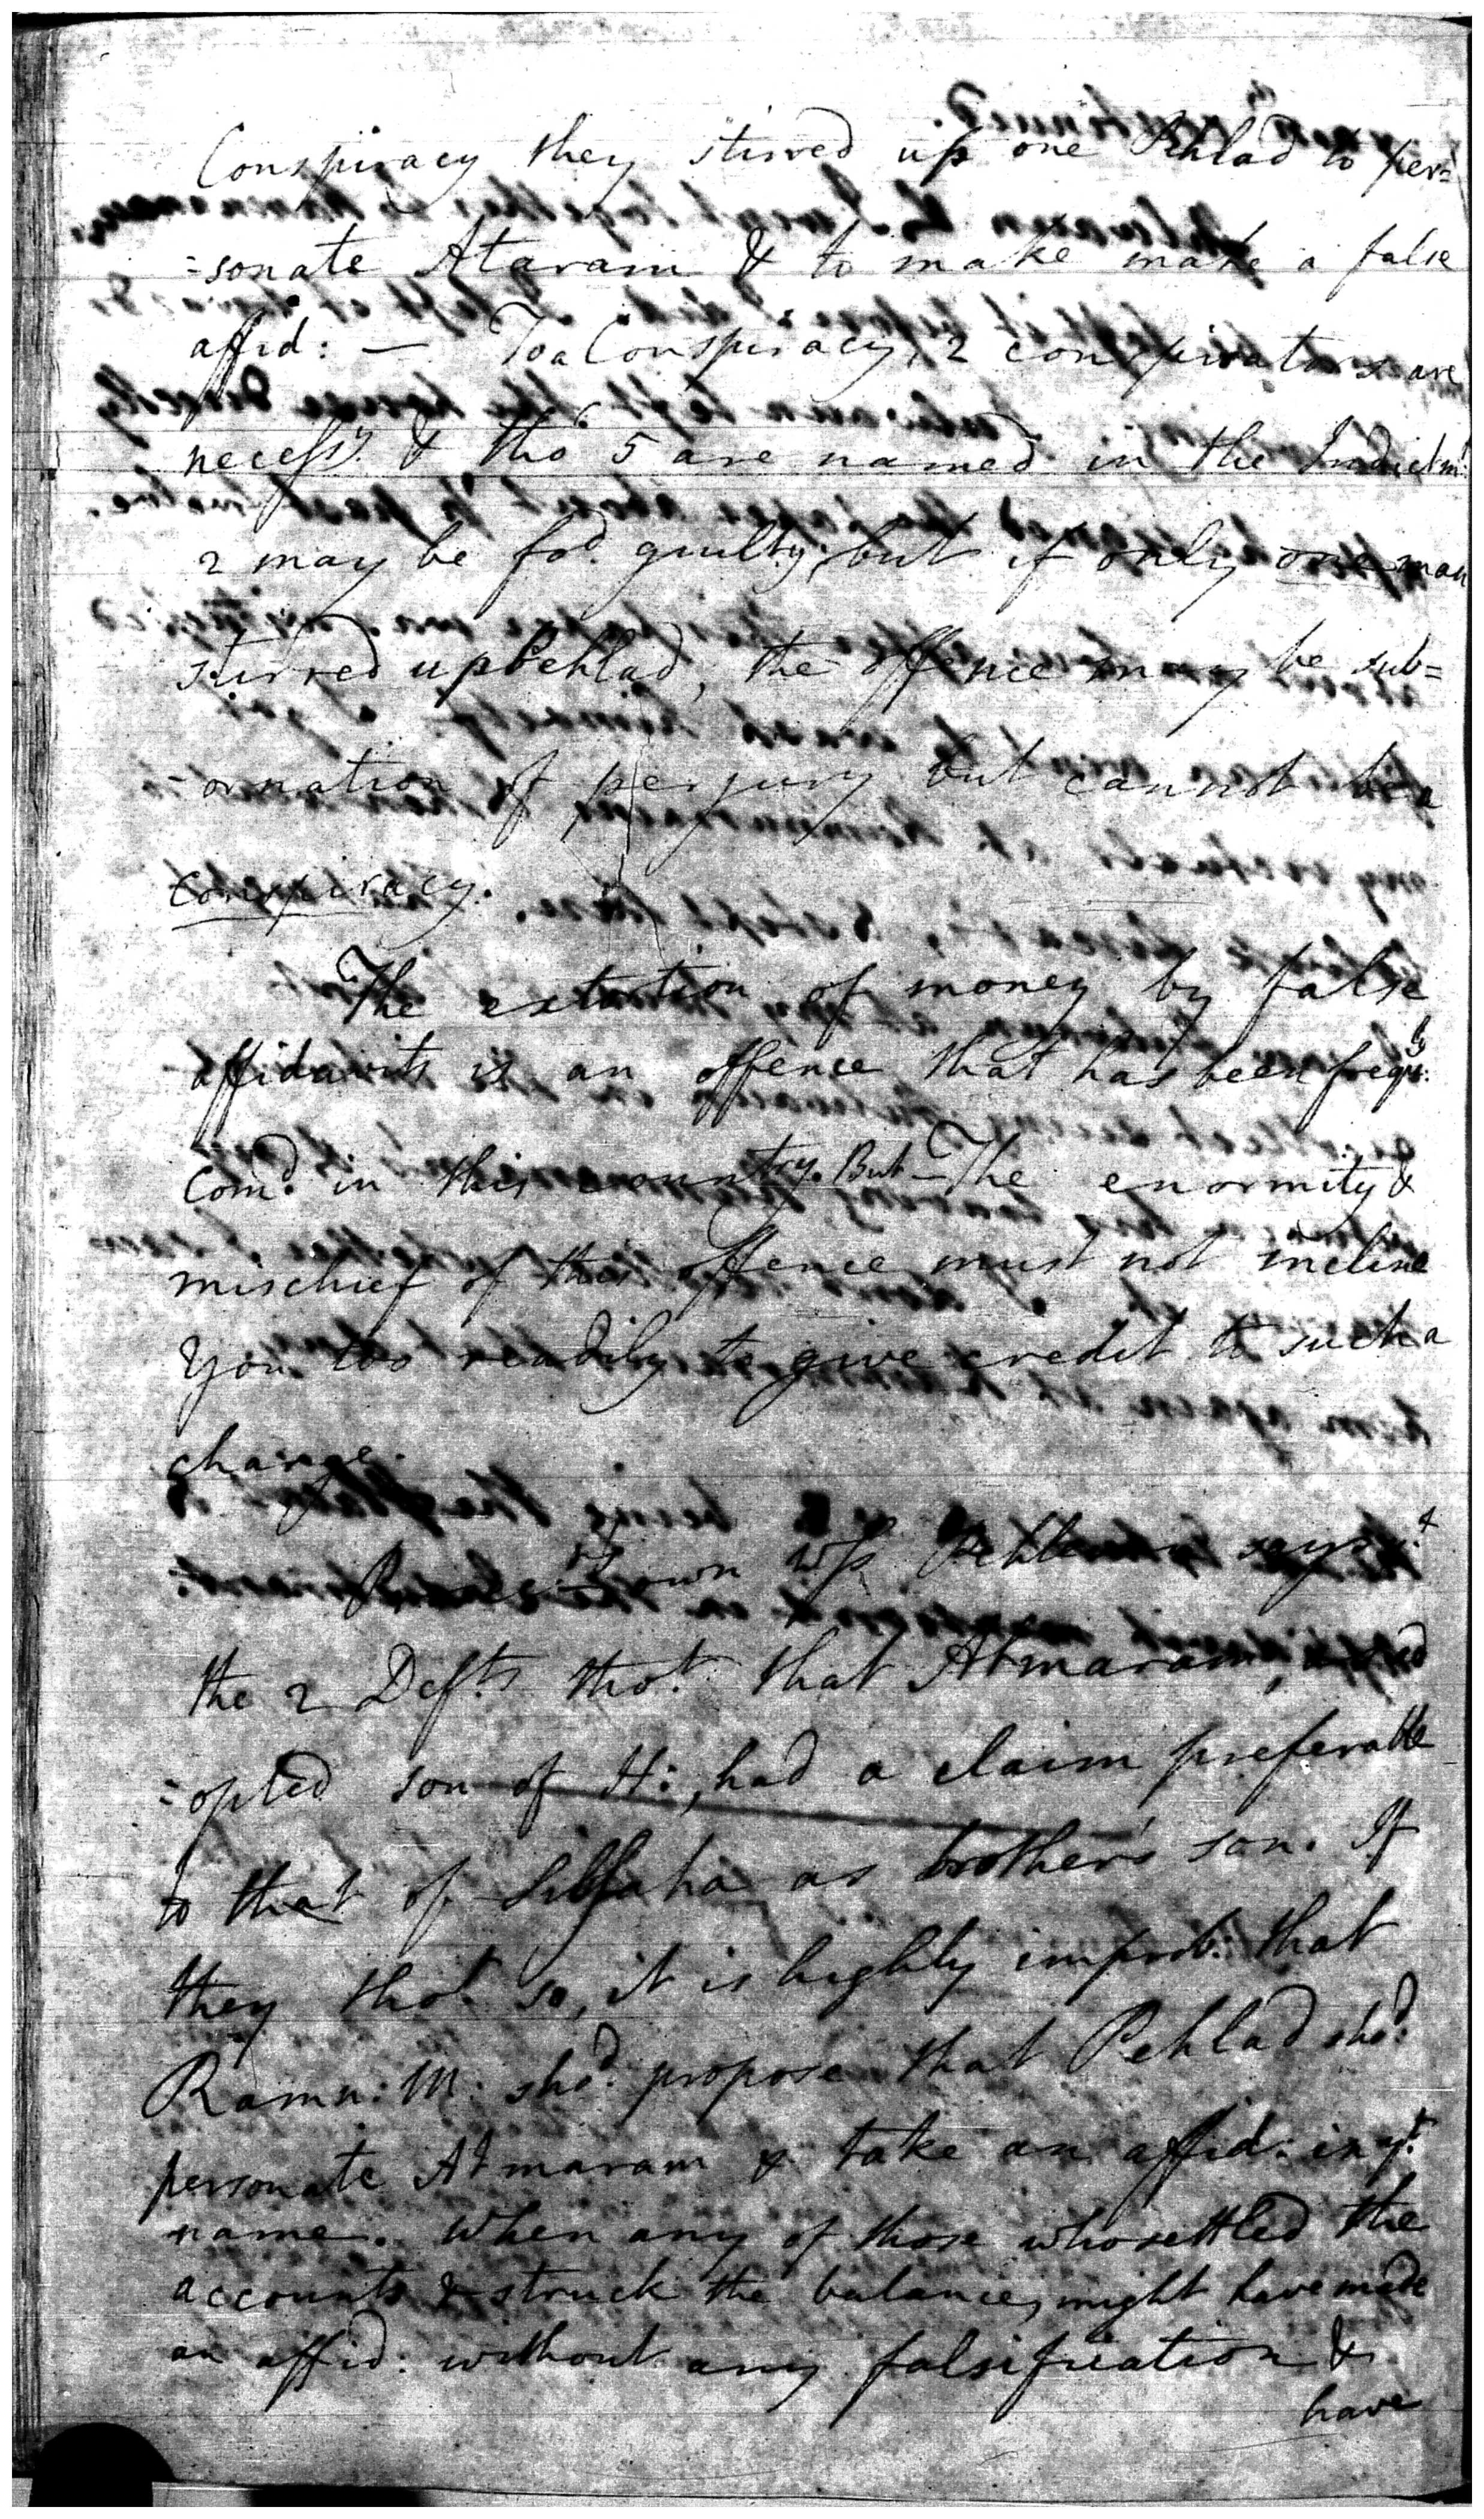 Conspiracy they stirred up one Pehlad to per=
=sonate Ataram & to make make a false
affid: — To a Conspiracy, 2 conspirators are
necessy. & tho' 5 are named in the Indictmt.
2 may be fod. guilty, but if only one man
stirred up Pehlad, the offence may be sub=
ornation of perjury but cannot be a
conspiracy.
The extortion of money by false
affidavits is an offence that has been freqly.
comd. in this country. But — The enormity &
mischief of this offence must not incline
You too readily to give credit to such a
charge.
own Wss. Pehlad says
the 2 Defts. thot. that Atmaram, ad
=opted son of H:, had a claim preferable
to that of as brother's son. If
they thot. so, it is highly improb: that
Ramn: M: shod. propose that Pehlad shod.
personate Atmaram & take an affid: in yt.
name. When any of those who settled the
accounts & struck the balance, might have made
an affid: without any falsification &
have